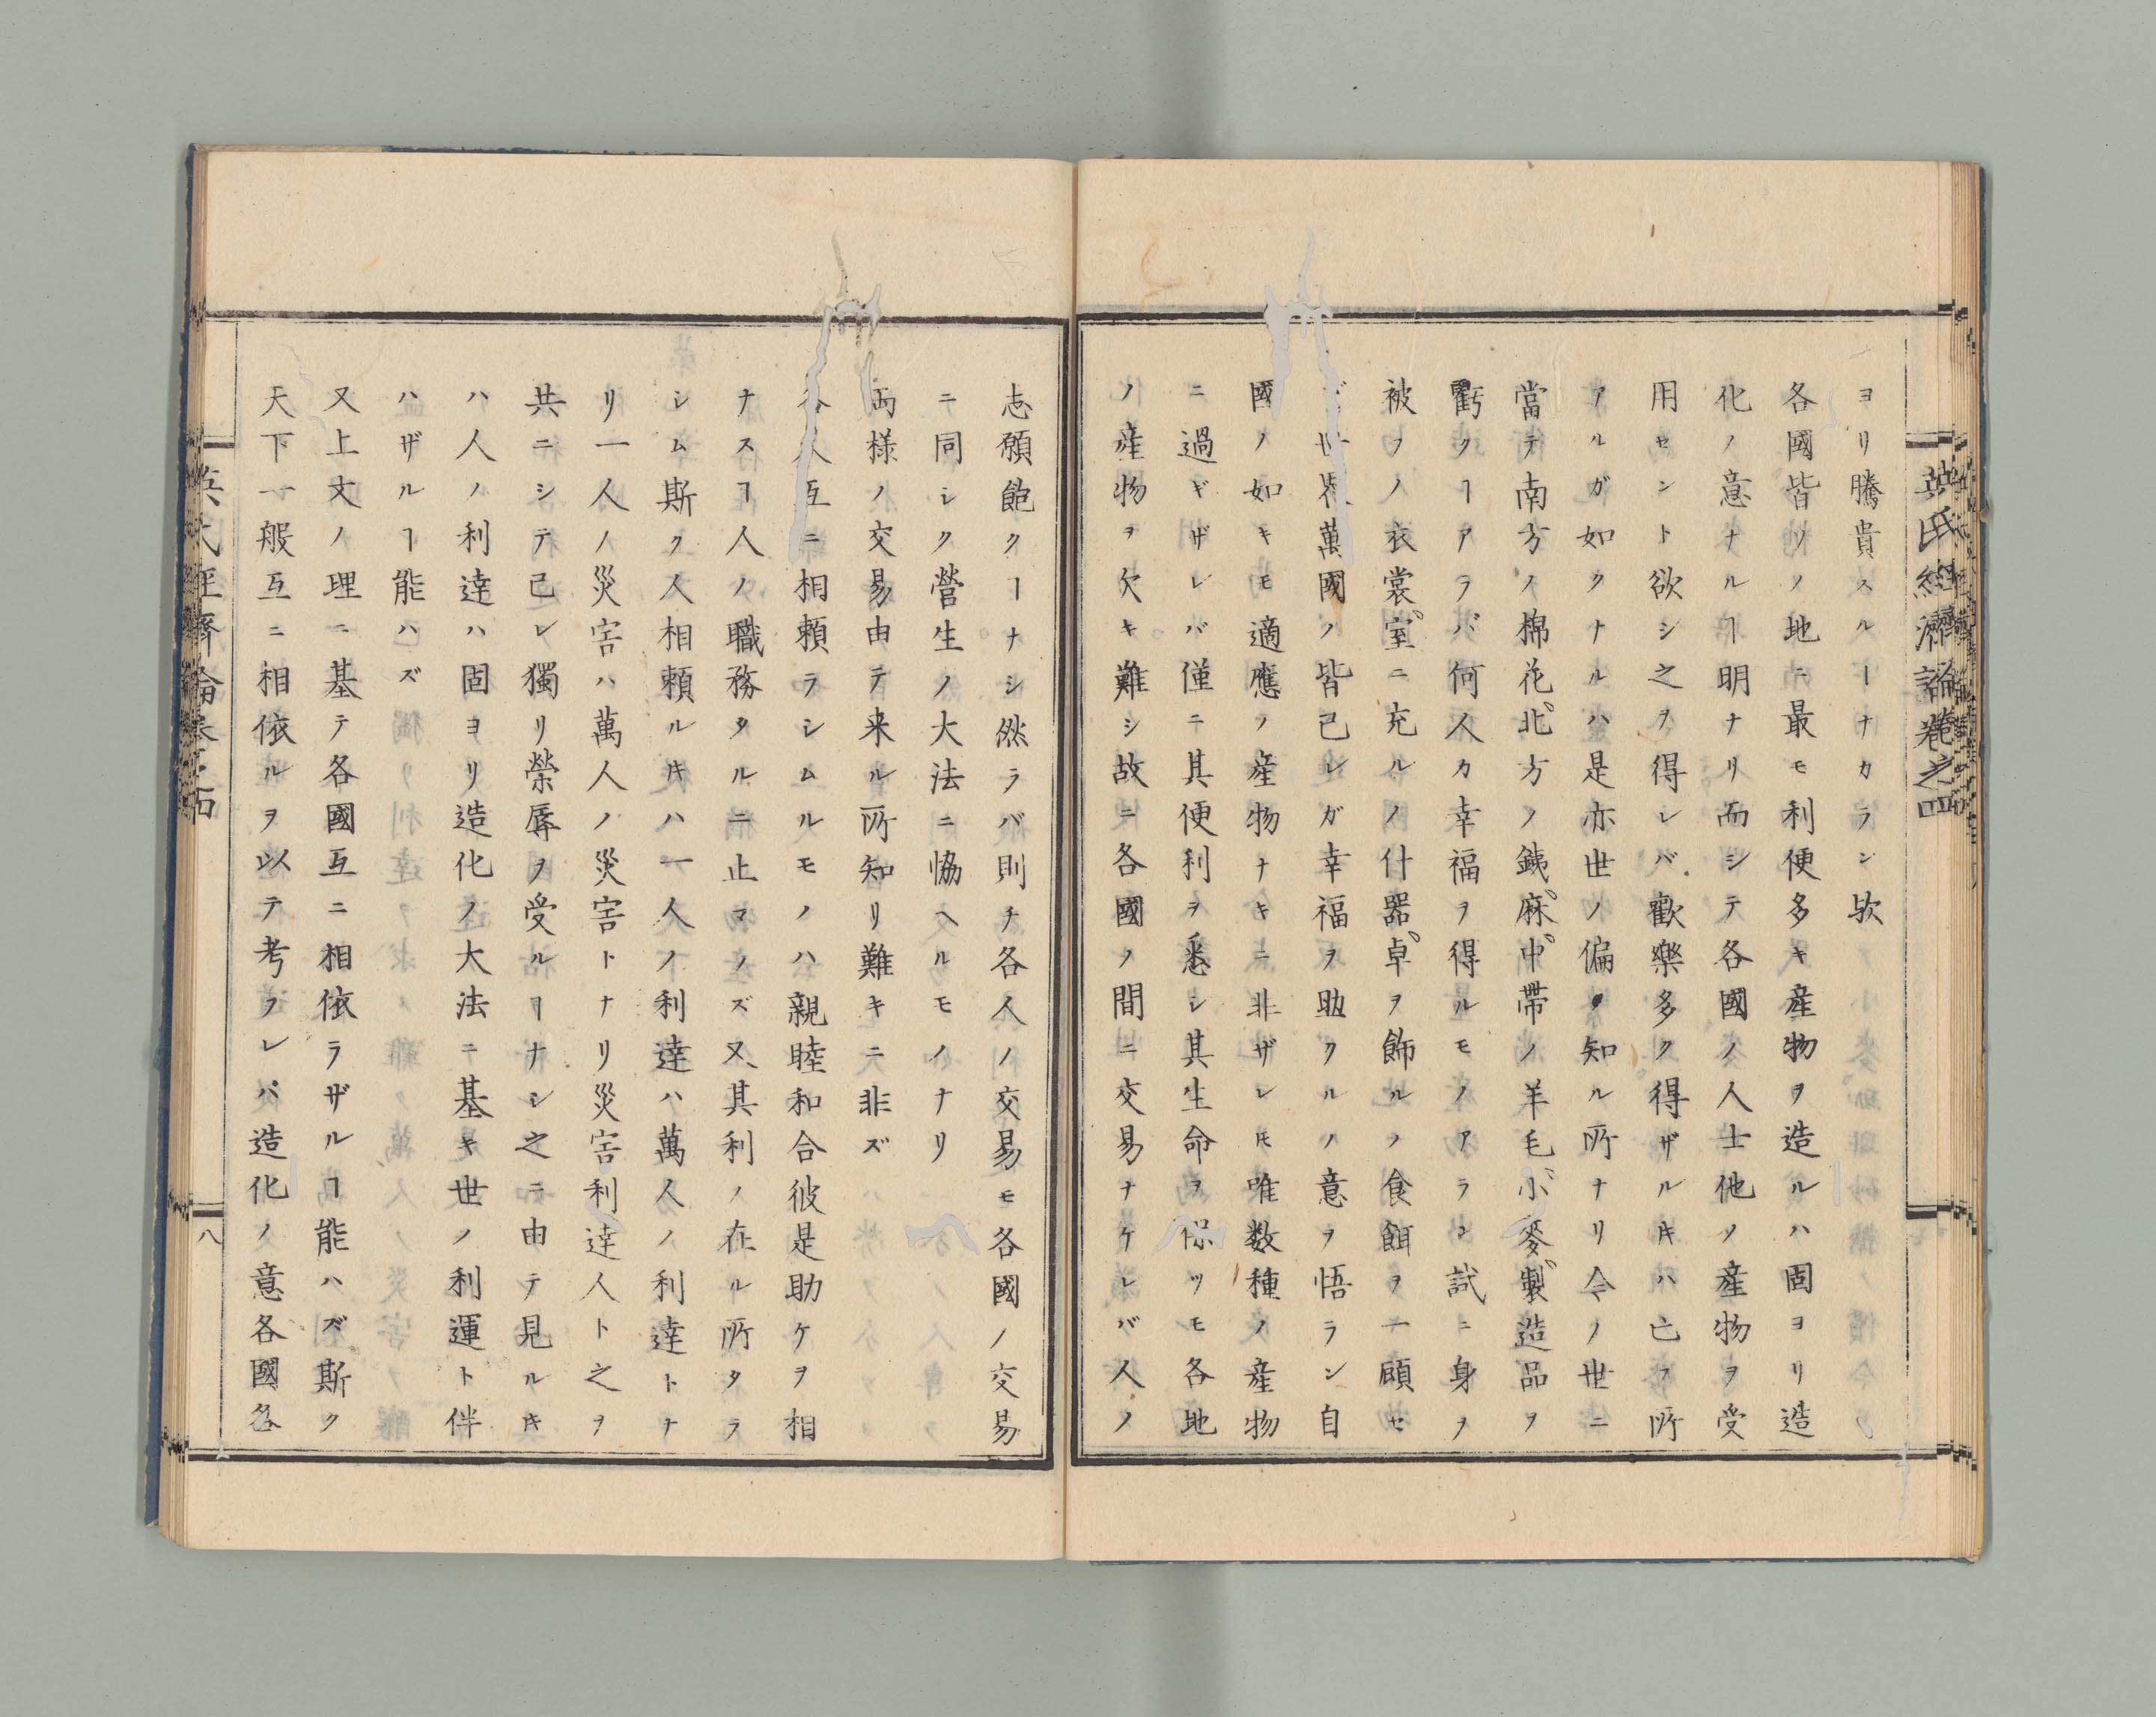 英氏經濟論卷之四
ヨリ騰貴スルヿナカラン歟
各國皆他ソノ地ニ最モ利便多キ産物ヲ造ルハ固ヨリ造
化ノ意ナルヿ明ナリ而シテ各國ノ人士他ノ産物ヲ受
用セント欲シ之ヲ得レバ歡樂多ク得ザルキハ亡フ所
アルガ如クナルハ是亦世ノ偏ク知ル所ナリ今ノ世ニ
當テ南方ノ棉花北方ノ銕麻中帶ノ羊毛小麥製造品ヲ
虧クヿアラバ何人カ幸福ヲ得ルモノアラン試ニ身ヲ
被フノ衣裳室ニ充ルノ什器卓ヲ飾ルノ食餌ヲ一顧セ
世界萬國ノ皆己レガ幸福ヲ助クルノ意ヲ悟ラン自
國ノ如キモ適應ノ産物ナキニ非ザレ𪜈唯数種ノ産物
ニ過ギザレバ僅ニ其便利ヲ悉シ其生命ヲ保ツモ各地
ノ産物ヲ欠キ難シ故ニ各國ノ間ニ交易ナケレバ人ノ
志願飽クヿナシ然ラバ則チ各人ノ交易モ各國ノ交易
ニ同シク營生ノ大法ニ恊ヘルモノナリ
両様ノ交易由テ来ル所知リ難キニ非ズ
人互ニ相頼ラシムルモノハ親睦和合彼是助ケヲ相
ナスヿ人ノ職務タルニ止マノズ又其利ノ在ル所タラ
シム斯ク人相頼ルキハ一人ノ利達ハ萬人ノ利達トナ
リ一人ノ災害ハ萬人ノ災害トナリ災害利達人ト之ヲ
共ニシテ己レ獨リ榮辱ヲ受ルヿナシ之ニ由テ見ルキ
ハ人ノ利達ハ固ヨリ造化ノ大法ニ基キ世ノ利運ト伴
ハザルヿ能ハズ
又上文ノ理ニ基テ各國互ニ相依ラザルヿ能ハズ斯ク
天下一般互ニ相依ルヲ以テ考フレバ造化ノ意各國各
英氏經濟論卷之四
八